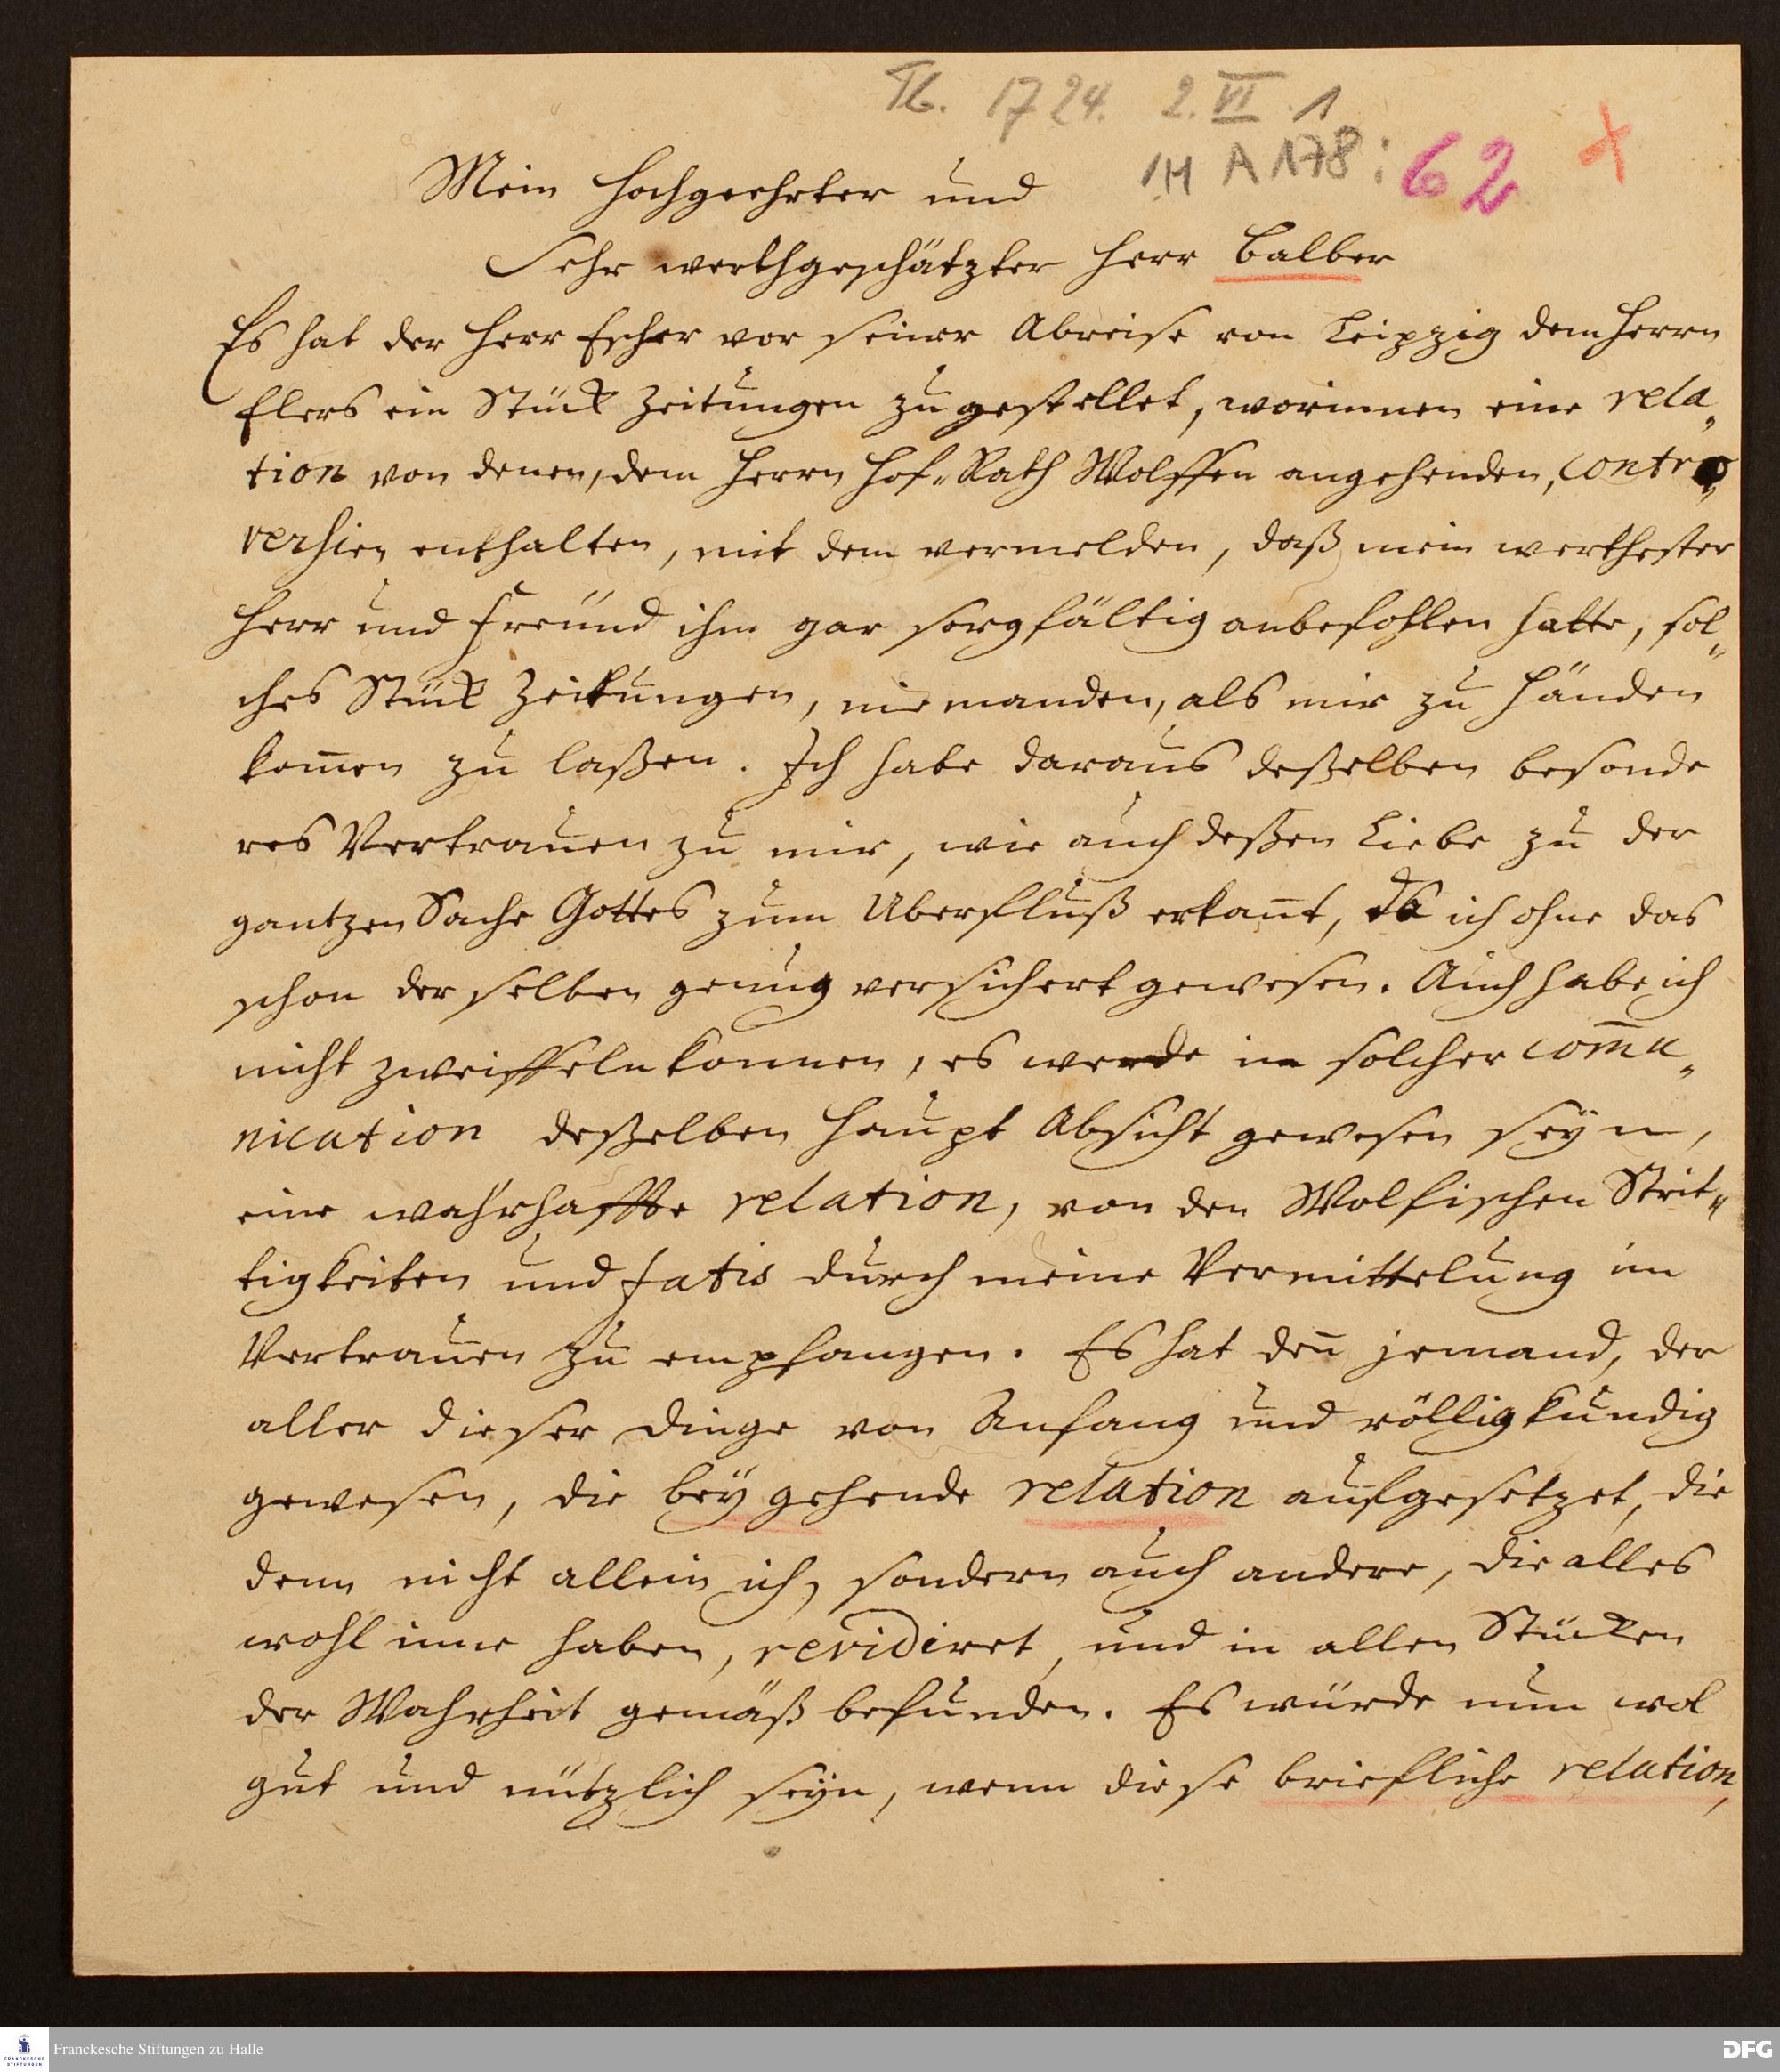 Tb. 1724. 2. VI. 1
1H A 178 : 62 +
Mein Hochgeehrter und
Sehr werthgeschätzter Herr Balber
Es hat der Herr Escher vor seiner Abreise von Leipzig dem Herrn
Elers ein Stück Zeitungen zugestellet, worinnen eine rela„
tion von denen, dem Herrn Hof-Rath Wolffen angehenden, contro„
versien enthalten, mit dem vermelden, daß mein werthester
Herr und Freund ihm gar sorgfältig anbefohlen hatte, sol„
ches Stück Zeitungen, niemanden, als mir zu Händen
kom̄en zu laßen. Ich habe daraus deßelben besonde
res Vertrauen zu mir, wie auch deßen Liebe zu der
gantzen Sache Gottes zum Uberfluß erkan̄t, da ich ohne das
schon derselben genug versichert gewesen. Auch habe ich
nicht zweiffeln konnen, es werde in solcher com̄u„
nication deßelben Haupt Absicht gewesen seyn,
eine wahrhaffte relation, von den Wolfischen Strit„
tigkeiten und fatis durch meine Vermittelung im
Vertrauen zu empfangen. Es hat den̄ jemand, der
aller dieser Dinge von Anfang und völlig kundig
gewesen, die beygehende relation aufgesetzet, die
denn nicht allein ich, sondern auch andere, die alles
wohl inne haben, revidiret, und in allen Stücken
der Wahrheit gemäß befunden. Es würde nun wol
gut und nützlich seyn, wenn diese briefliche relation,
FRANCKESCHE STIFTUNGEN
Franckesche Stiftungen zu Halle
DFG